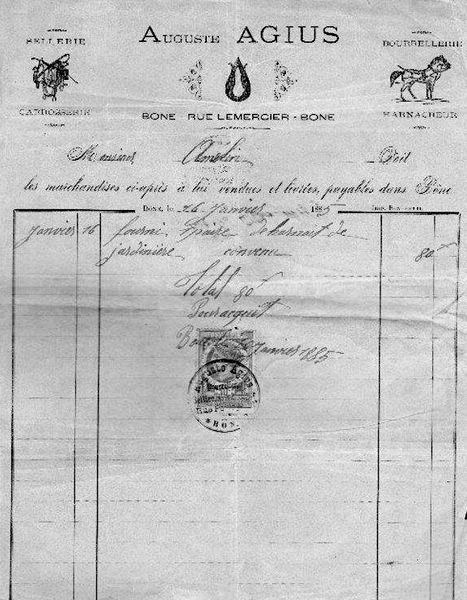 SELLERIE
AUGUSTE AGIUS
BOURRELLERIE
CARROSSERIE
HARNACHEUR
BONE - RUE LEMERCIER - BONE
Monsieur Doit
les marchandises ci-après à lui vendues et livrées, payables dans Bône
BONE, le 26 Janvier 1885
Janvier 16 fourni 1 paire de harnart de
jardinière convenu 80
Total 80f
Pour acquit
Bône le Janvier 1885
BONE